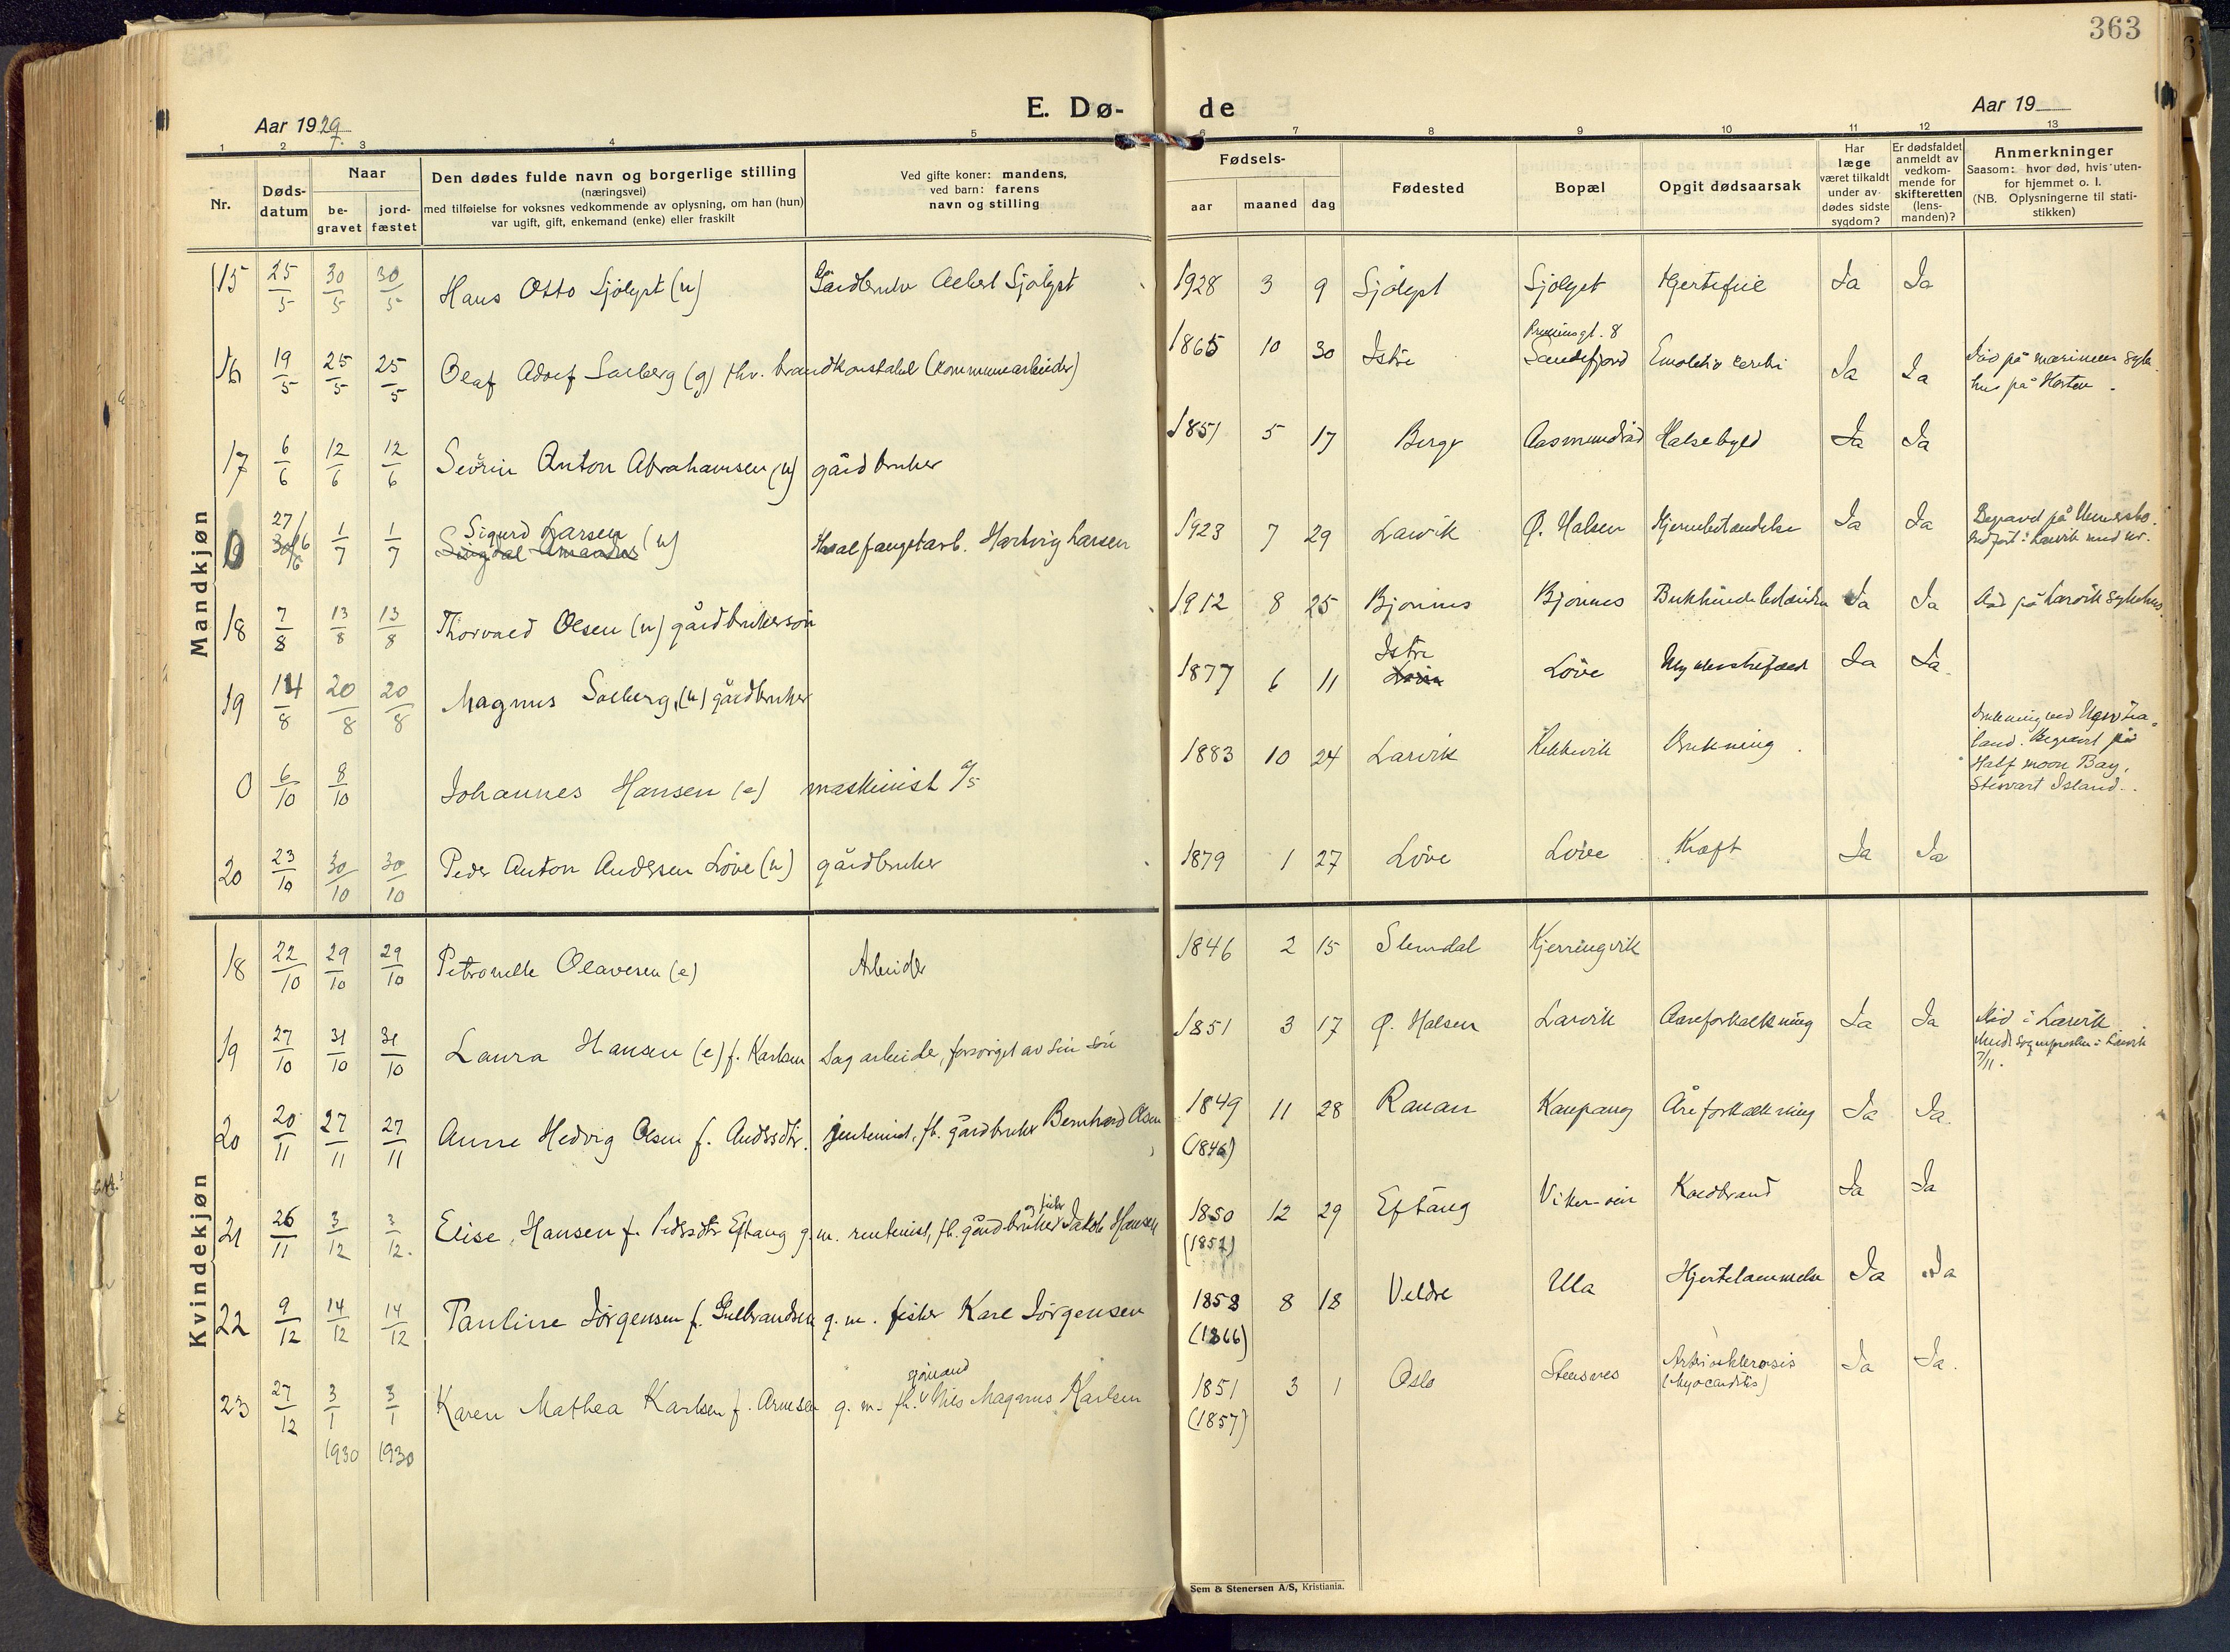 363
E. Dø-
de
Aar 1929
Aar 19
1 2 3 4 5 6 7 8 9 10 11 12 13
Nr.
Døds-
datum
Naar
be-
gravet
jord-
fæstet
Den dødes fulde navn og borgerlige stilling
(næringsvei)
med tilføielse for voksnes vedkommende av oplysning, om han (hun)
var ugift, gift, enkemand (enke) eller fraskilt
Ved gifte koner: mandens,
ved barn: farens
navn og stilling
Fødsels-
aar maaned dag
Fødested
Bopæl
Opgit dødsaarsak
Har
læge
været tilkaldt
under av-
dødes sidste
sygdom?
Er dødsfaldet
anmeldt av
vedkom-
mende for
skifteretten
(lens-
manden)?
Anmerkninger
Saasom: hvor død, hvis uten-
for hjemmet o. l.
(NB. Oplysningerne til stati-
stikken)
Mandkjøn
15 25/5 30/5 30/5 Hans Otto Sjölyst (u) Gårdbruker Sjölyst 1928 3 9 Sjölyst Sjölyst Hjertefeil Ja Ja
16 19/5 25/5 25/5 Olaf Adolf Solberg (g) fhv. brandkonstabel (kommunearbeider) 1865 10 30 Istre
Sandefjord Ja Ja
Död på marinens syke-
hus på Horten.
17 6/6 12/6 12/6 Sevrin Anton Abrahamsen (u) gårdbruker 1851 5 17 Berge Aasmundrød Halsebyld Ja Ja
0 27/6 1/7 1/7 Sigurd Larsen (u) Hvalfangstarb. Hartvig Larsen 1923 7 29 Larvik Ø. Halsen Hjernebetændelse Ja Ja
18 7/8 13/8 13/8 Thorvald Olsen (u) gårdbrukersön 1912 8 25 Bjønnes Bjønnes Bukhindebetændelse Ja Ja Död på Larvik sykehus
19 14/8 20/8 20/8 Magnus Solberg (u) gårdbruker 1877 6 11 Istre Löve Ja Ja
0 6/10 8/10 Johannes Hansen (e) maskinist 1883 10 24 Larvik Drukning
Drukning ved New Zea-
land. Begravet på
Half moon Bay,
Stewart Island.
20 23/10 30/10 30/10 Peder Anton Anderssen Löve (u) gårdbruker 1879 1 27 Löve Löve Kræft Ja Ja
Kvindekjøn
18 22/10 29/10 29/10 Petronelle Olavesen (e) Arbeider 1846 2 15 Slemdal Kjerringvik
19 27/10 31/10 31/10 Laura Hansen (e) f. Karlsen Sagarbeider, forsørget av sin sön 1851 3 17 Ø. Halsen Larvik Aareforkalkning Ja Ja
Död i Larvik
20 20/11 27/11 27/11 Anne Hedvig Olsen f. Andersdtr. fh. gårdbruker Bernhard Olsen 1849 11 28 Rauan Kaupang Åreforkalkning Ja Ja.
(1846)
21 26/11 3/12 3/12. Elise Hansen f. Pedersdtr Eftang g. m. rentenist, fh. gårdbruker og fisker Jakob Hansen 1850 12 29 Eftang Koldbrand Ja Ja
(1852)
22 9/12 14/12 14/12 Pauline Jörgensen f. Gulbrandsen g. m. fisker Karl Jörgensen 1858 8 18 Veldre Ula Hjertelammelse Ja Ja
(1866)
23 27/12 3/1 3/1 Karen Mathea Karlsen f. Arnesen g. m. fh. sjömand Nils Magnus Karlsen 1851 3 1 Oslo Stensnes Arteriosklerosis Ja Ja.
(Myocarditis)
1930 1930
(1857)
Sem & Stenersen A/S, Kristiania.